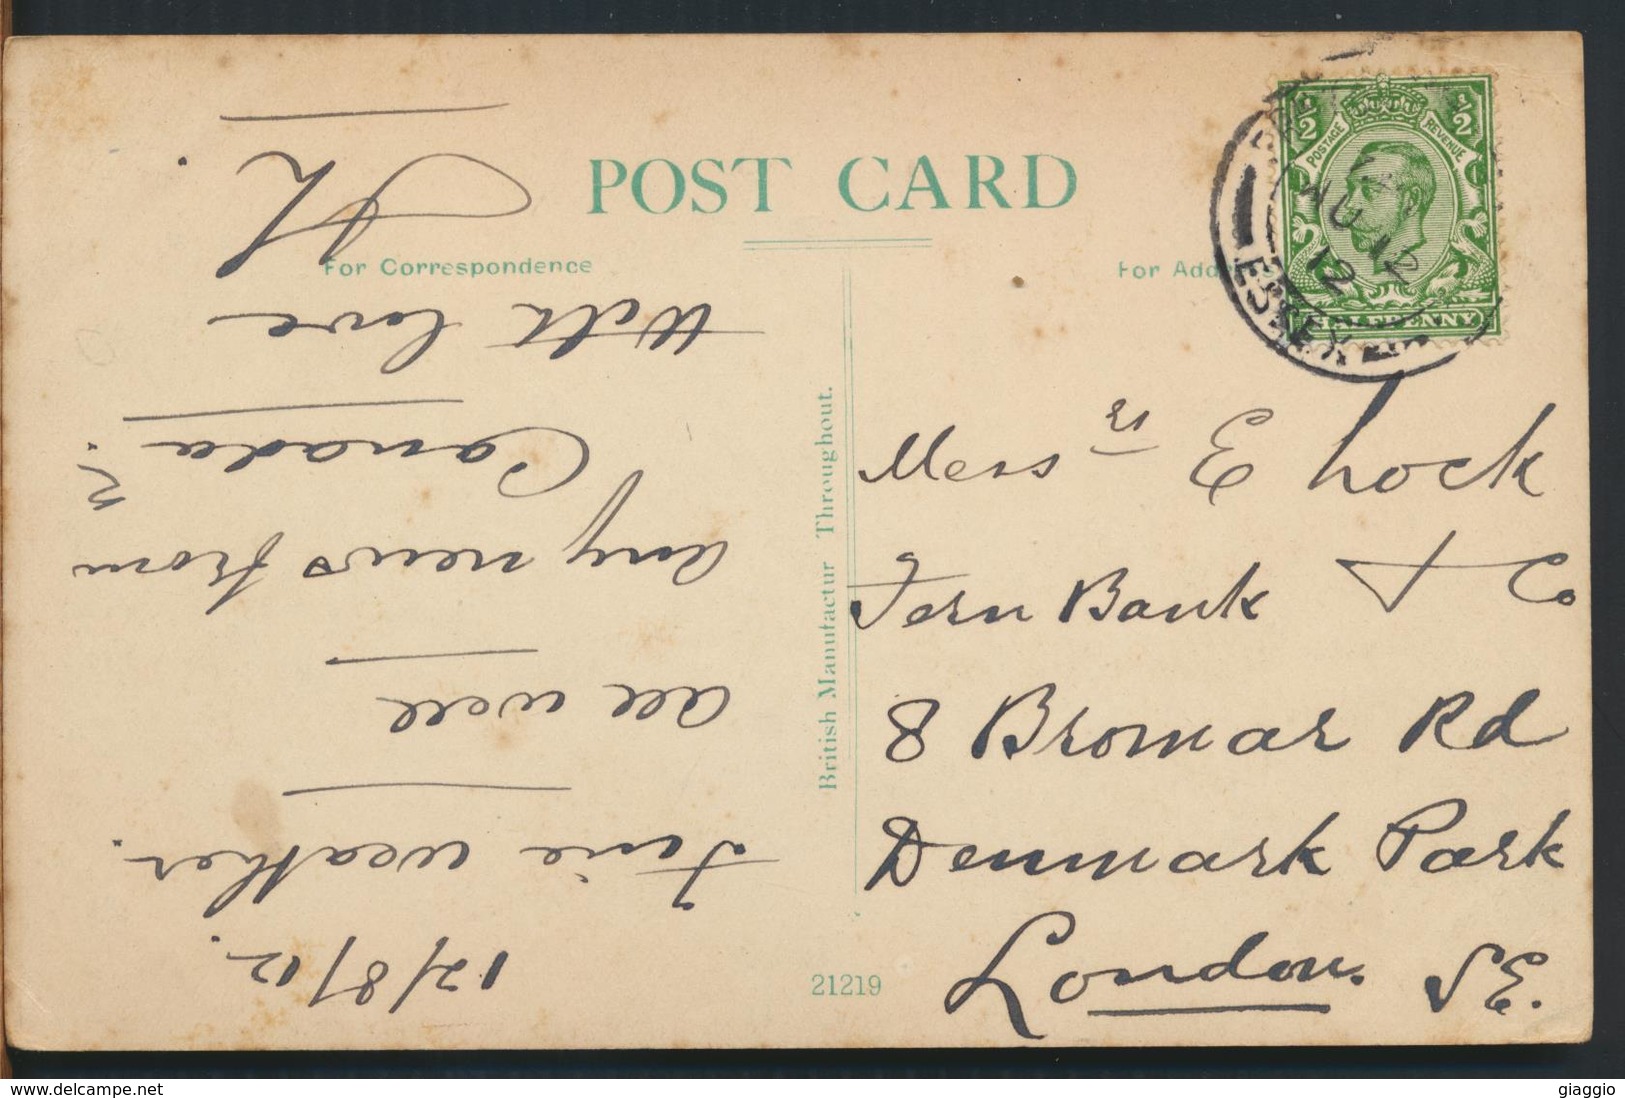 POST CARD
For Correspondence
12/8/12.
Fine weather.
all well
Any news from
Canada?
With love
British Manufactur Throughout.
21219
½ ½
POSTAGE REVENUE
HALFPENNY
12
ESSEX
Messrs E Lock
& Co
Fern Bank
8 Bromar Rd
Denmark Park
London. S.E.
www.delcampe.net
giaggio